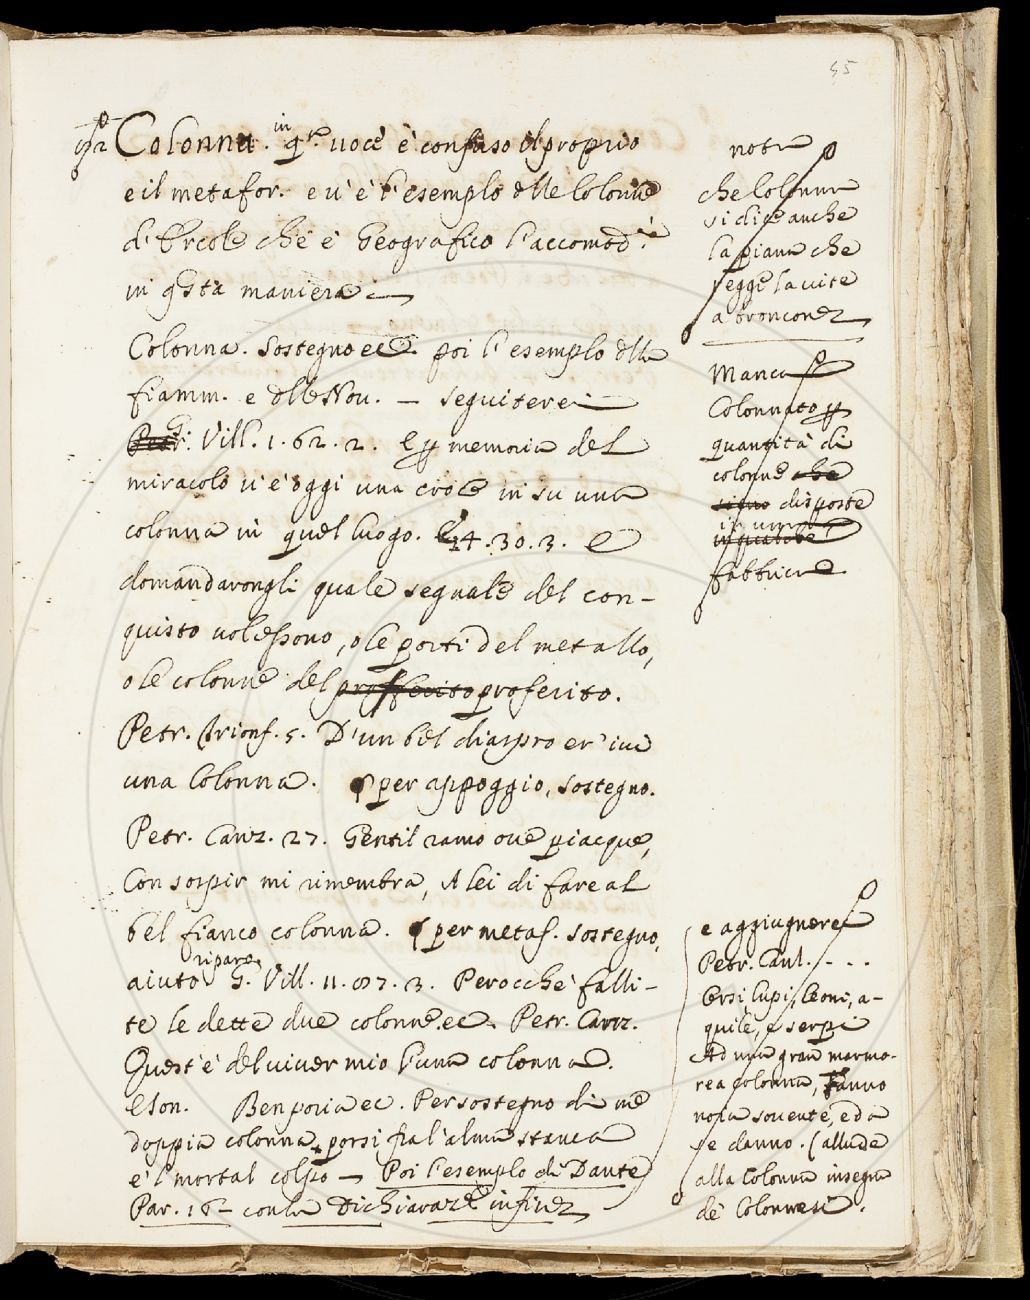 45
Colonna. in q.ta voce è confuso il proprio
e il metafor. e v'è l'esemplo dlle Colonne
d'Ercole che è Geografico l'accomod.
in q.sta maniera
Colonna. Sostegno ec. poi l'esemplo dlla
fiamm. e dlle Nov. — seguitere
G. Vill. 1. 62. 2. E p memoria del
miracolo v'è oggi una croce in su una
colonna in quel luogo. E 4. 30. 3. E
domandarongli quale segnale del con-
quisto volessono, o le porti del metallo,
o le colonne del profferito proferito.
Petr. Trionf. 5. D'un bel diaspro er' ivi
una Colonna. § per appoggio, sostegno.
Petr. Canz. 27. Gentil ramo ove piacque,
Con sospir mi rimembra, A lei di fare al
bel fianco colonna. § per metaf. sostegno,
riparo.
aiuto G. Vill. 11. 87. 3. Perocchè falli-
te le dette due colonne. ec. Petr. Canz.
Quest'è del viver mio l'una colonna.
e Son. Ben poria ec. Per sostegno di me
doppia colonna, porsi fra l'alma stanca
e 'l mortal colpo — Poi l'esemplo di Dante
Par. 16 — con la Dichiaraz. in fine
nota
che Colonna
si dice anche
la piana che
regge la vite
a bronconi
Manca
Colonnato p
quantità di
colonne che
disposte
in una
fabbrica
e aggiugnere
Petr. Cant. - - -
Orsi, lupi, leoni, a-
quile, e serpi
Ad una gran marmo-
rea colonna, Fanno
noia sovente, ed a
se danno. (allude
alla Colonna insegna
de' Colonnesi.